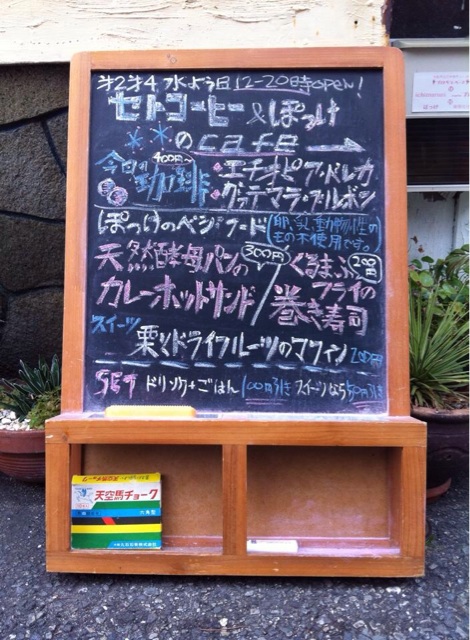 第2第4 水よう日 12-20時open!
セトコーヒー & ぽっけ
の cafe →
今日の珈琲 400円〜
・エチオピア・ベレカ
・グァテマラ・ブルボン
ぽっけのベジ・フード (卵、乳、動物性のもの不使用です。)
天然酵母パンの
カレーホットサンド 300円
くるまぶ 200円
フライの
巻き寿司
スイーツ
栗とドライフルーツのマフィン 200円
SET ドリンク+ごはん 100円引き スイーツなら50円引き
天空馬チョーク
六角型